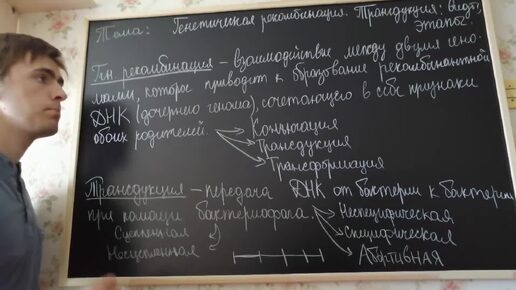 Тема: Генетическая рекомбинация. Трансдукция: виды,
этапы.
Ген. рекомбинация – взаимодействие между двумя гено-
мами, которое приводит к образование рекомбинантной
ДНК (дочернего генома), сочетающего в себе признаки
обоих родителей.
Конъюгация
Трансдукция
Трансформация
Трансдукция – передача ДНК от бактерии к бактерии
при помощи бактериофага.
Неспецифическая
Специфическая
Абортивная
Сцепленная
Несцепленная